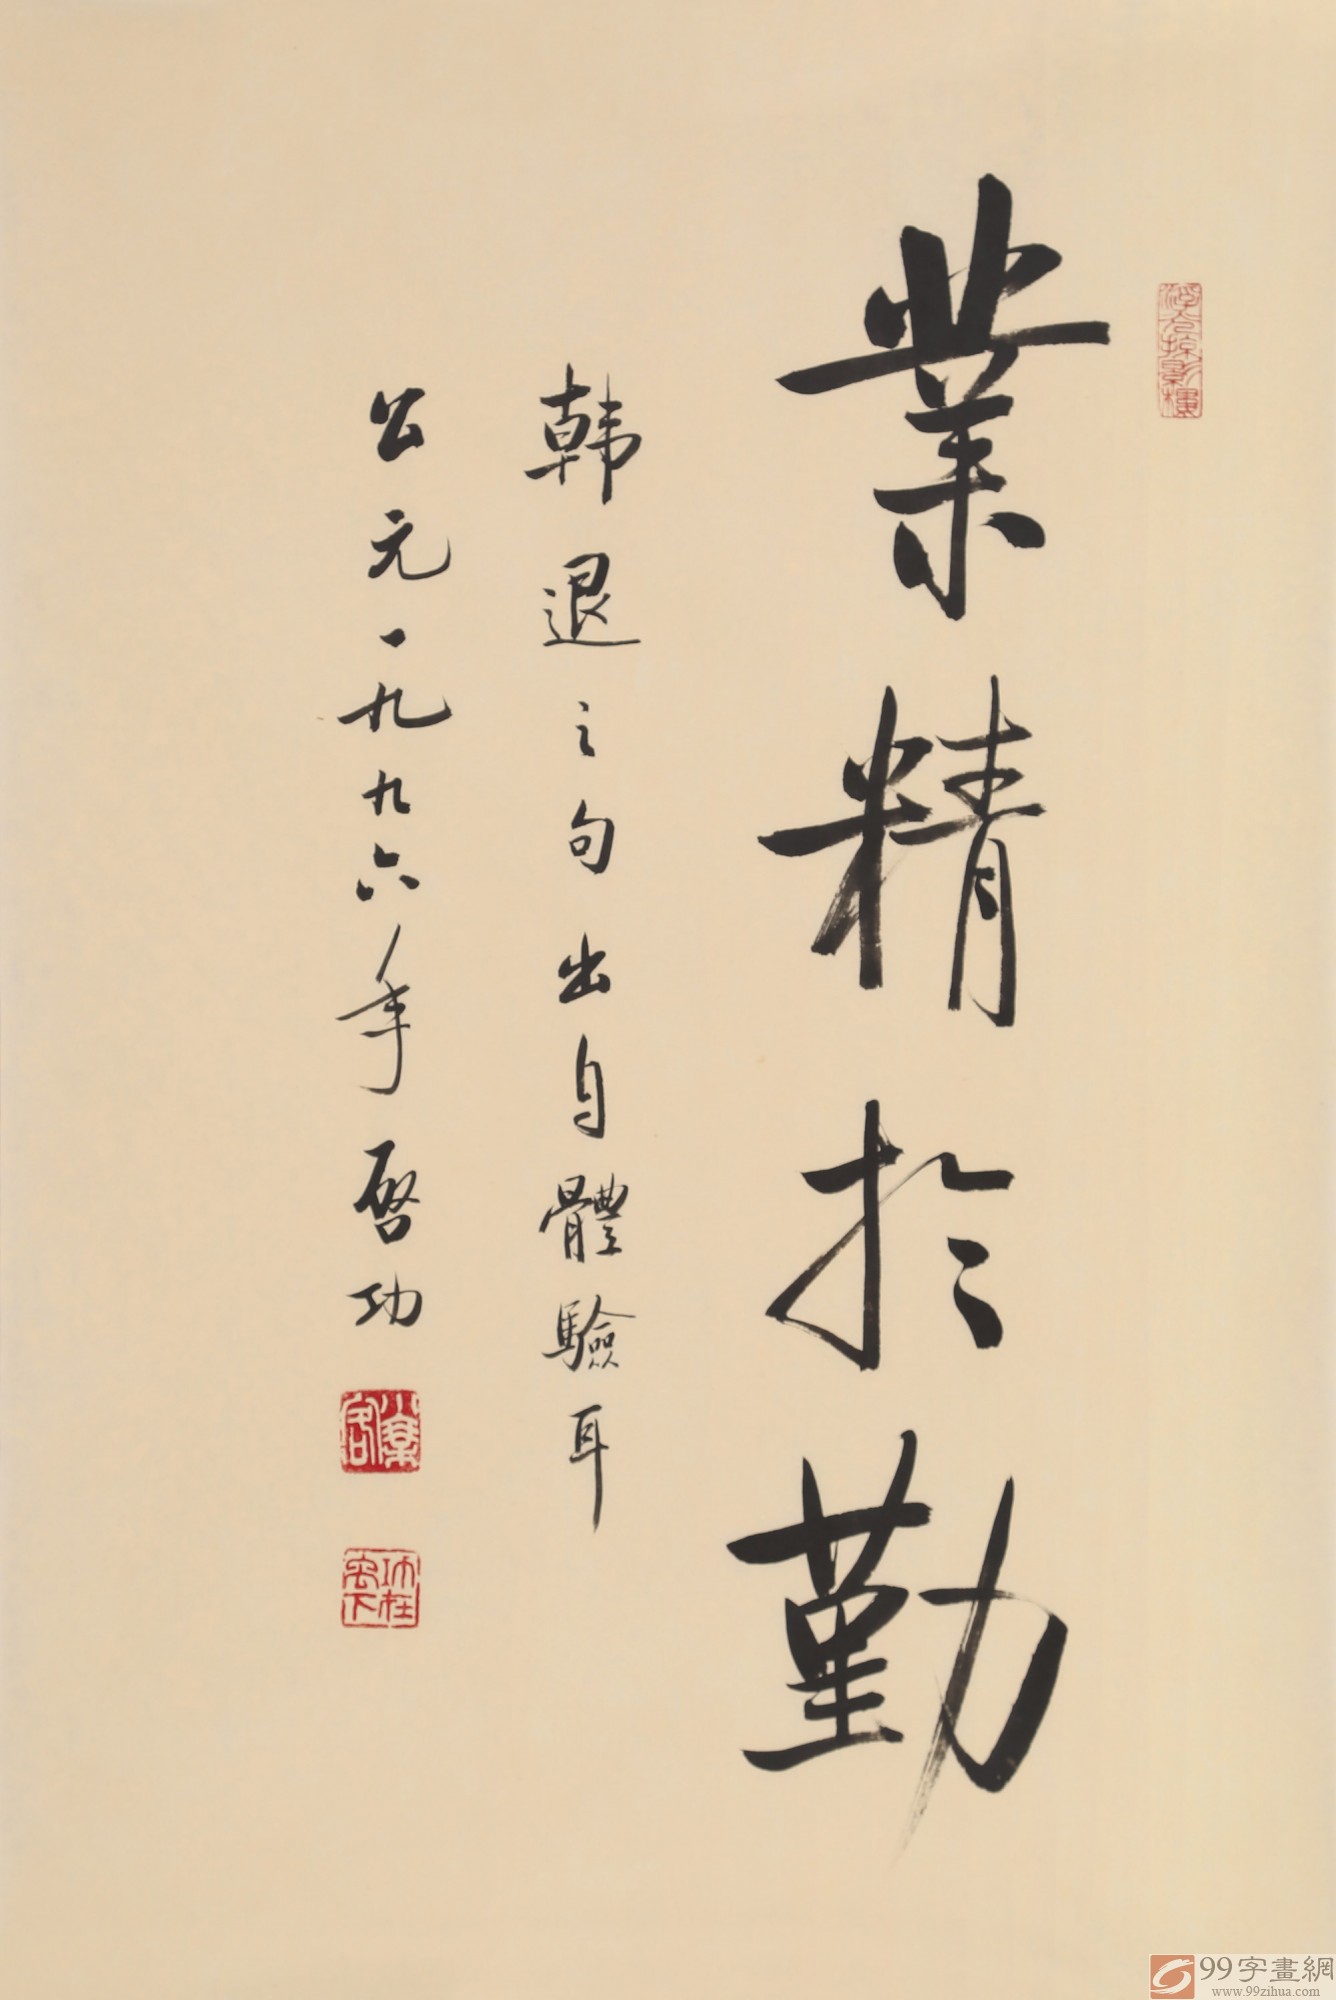 業精於勤
韩退之句出自體驗耳
公元一九九六年啓功
99字畫網
www.99zihua.com